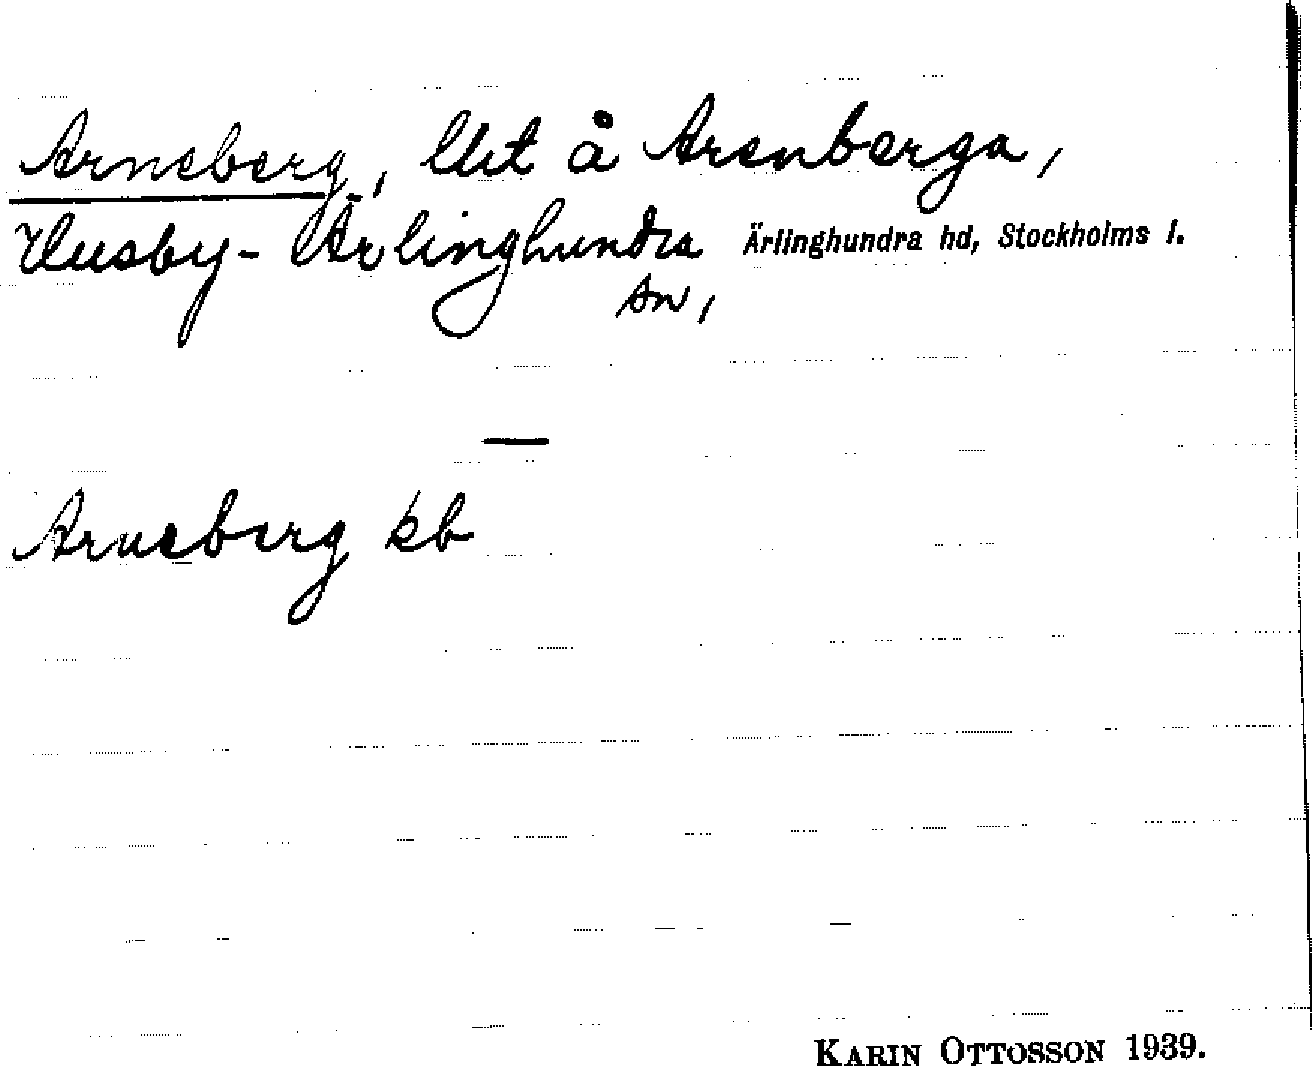 Arneberg, lht å Arenberga,
Husby-Ärlinghundra Ärlinghundra hd, Stockholms l.
sn,
—
Arneberg kb
KARIN OTTOSSON 1939.